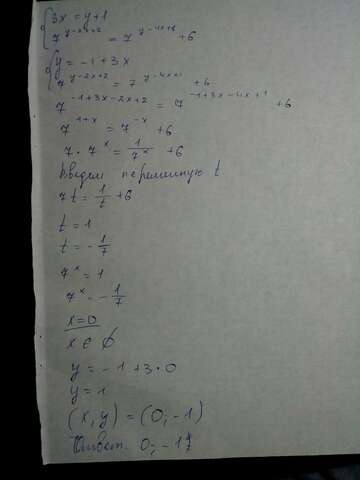 {3x = y+1
7^{y-x+2} = 7^{y-4x+1} + 6
{y = -1 + 3x
7^{y-2x+2} = 7^{y-4x+1} + 6
7^{-1+3x-2x+2} = 7^{-1+3x-4x+1} + 6
7^{1+x} = 7^{-x} + 6
7 · 7^x = \frac{1}{7^x} + 6
Введем переменную t
7t = \frac{1}{t} + 6
t = 1
t = -\frac{1}{7}
7^x = 1
7^x = -\frac{1}{7}
x = 0
x ∈ ∅
y = -1 + 3 · 0
y = 1
(x, y) = (0, -1)
Ответ. 0; -1